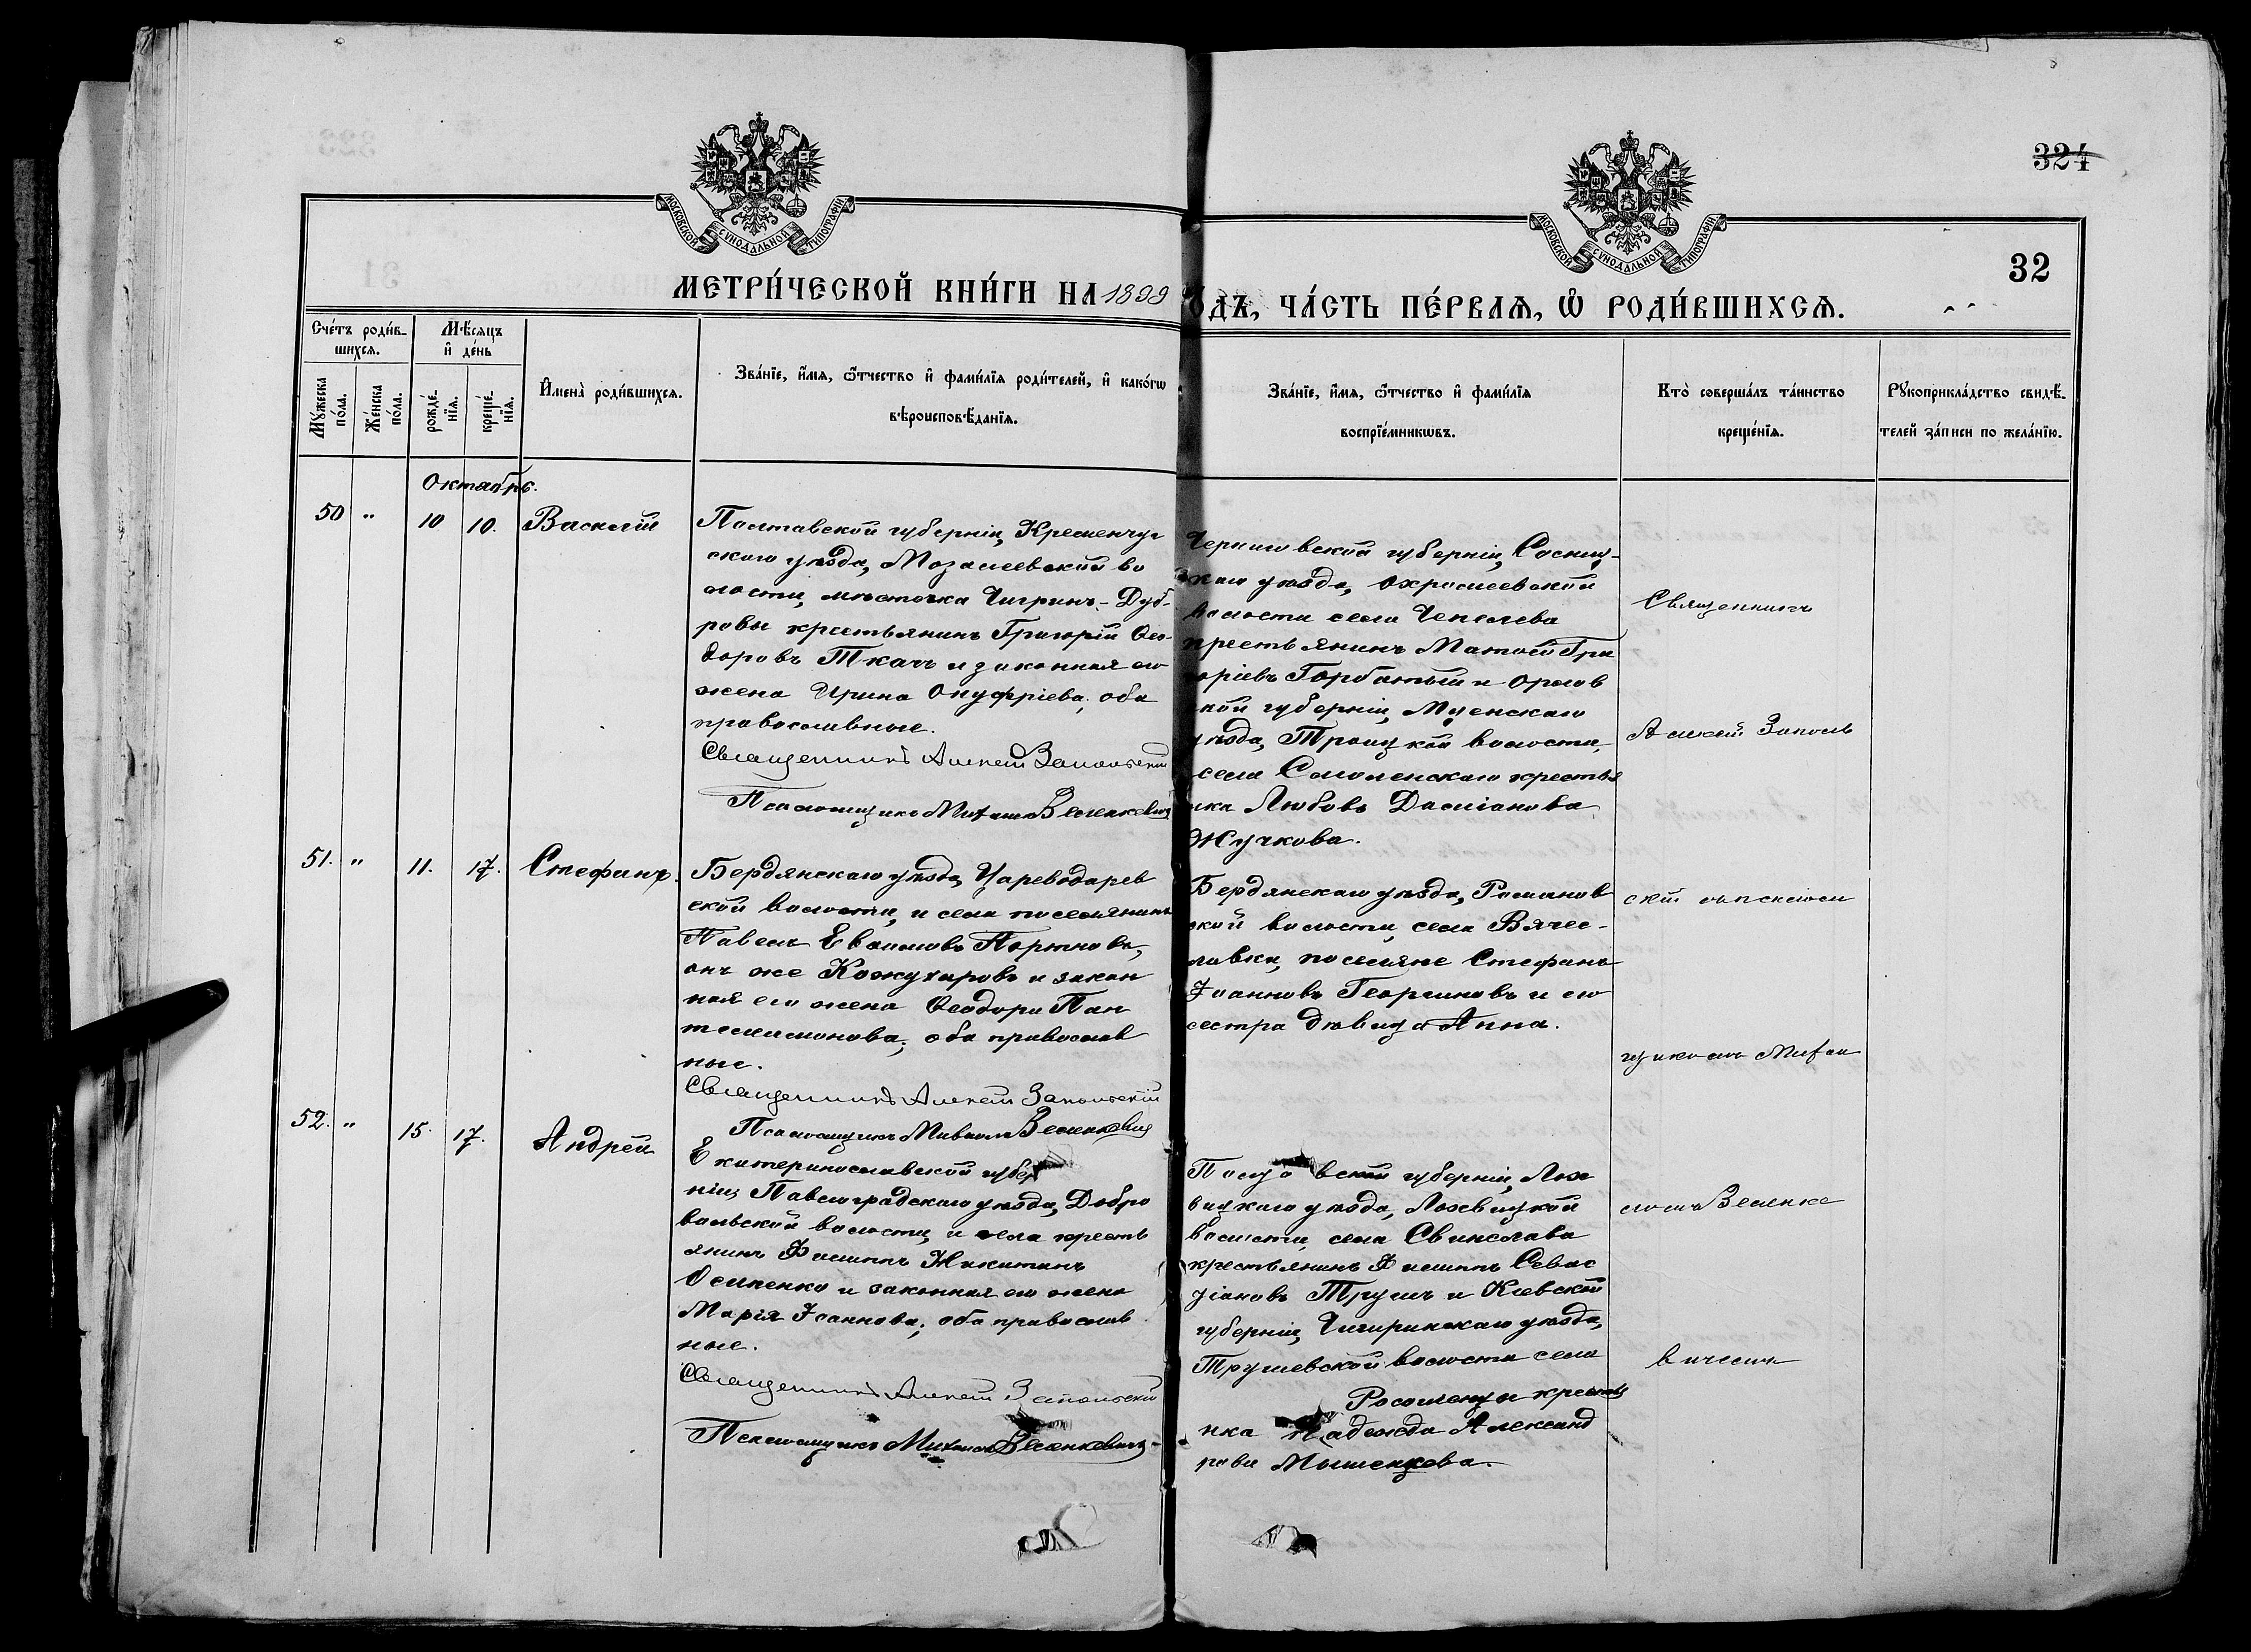 324
МОСКОВСКОЙ СУНОДАЛЬНОЙ ТИПОГРАФІИ
МОСКОВСКОЙ СУНОДАЛЬНОЙ ТИПОГРАФІИ
32
МЕТРИ́ЧЕСКОЙ КНИ́ГИ НА 1899
ГО́ДЪ, ЧА́СТЬ ПЕ́РВАѦ, Ѽ РОДИ́ВШИХСѦ.
Сче́тъ роди́в-
шихсѧ.
Мѣ́сѧцъ
и҆ де́нь
Мꙋ́жеска по́ла.
Же́нска по́ла.
рожде́-нїѧ.
креще́-нїѧ.
И҆мена̀ роди́вшихсѧ.
Зва́нїе, и҆́мѧ, ѻ҆́тчество и҆ фами́лїѧ роди́телей, и҆ како́гѡ
вѣроисповѣ́данїѧ.
Зва́нїе, и҆́мѧ, ѻ҆́тчество и҆ фами́лїѧ
воспрїе́мникѡвъ.
Кто̀ соверша́лъ та́инство
креще́нїѧ.
Рꙋкоприкла́дство свидѣ́-
телей за́писи по жела́нїю.
Октябрь.
50 " 10 10. Василій
Полтавской губерніи, Кременчуг
скаго уѣзда, Мозалеевской во
лости, мѣстечка Чигринъ-Дуб-
ровы крестьянинъ Григорій Ѳео-
доровъ Ткачъ и законная его
жена Ирина Онуфріева; оба
православные.
Священникъ Алексѣй Запольскій
Псаломщикъ Михаилъ Величкевичъ
Черниговской губерніи, Сосниц-
каго уѣзда,
волости села Чепелева
крестьянинъ Матѳей Гри
горіевъ Горбатый и Орлов
ской губерніи, Мценскаго
уѣзда, Троицкой волости,
села Смоленскаго крестья
нка Любовь Даміанова
Жучкова.
Священникъ
Алексѣй Заполь
51. " 11. 17. Стефанъ.
Бердянскаго уѣзда, Цареводарев
ской волости, и села поселянинъ
Павелъ Евѳимовъ Портновъ,
онъ же Кожухаровъ и закон
ная его жена Ѳеодора Пан
телеимонова; оба православ
ные.
Священникъ Алексѣй Запольскій
Псаломщикъ Михаилъ
Бердянскаго уѣзда, Романов
ской волости, села Вячес-
лавки, поселяне Стефанъ
Іоанновъ Георгиновъ и его
сестра дѣвица Анна.
скій съ псалом
щикомъ Миха
52. " 15. 17. Андрей
Екатеринославской губер
ніи, Павлоградскаго уѣзда, Добро
вольской волости, и села кресть
янинъ Филиппъ Никитинъ
Осипенко и законная его жена
Марія Іоаннова; оба православ
ные.
Священникъ Алексѣй Запольскій
Псаломщикъ Михаилъ
вской губерніи, Лох
вицкаго уѣзда, Лохвицкой
волости, села
крестьянинъ Филиппъ Севас
тіановъ Трушъ и Кіевской
губерніи, Чигиринскаго уѣзда,
Трушевской волости села
крестья
нка Надежда Александ
рова
иломъ
вичемъ